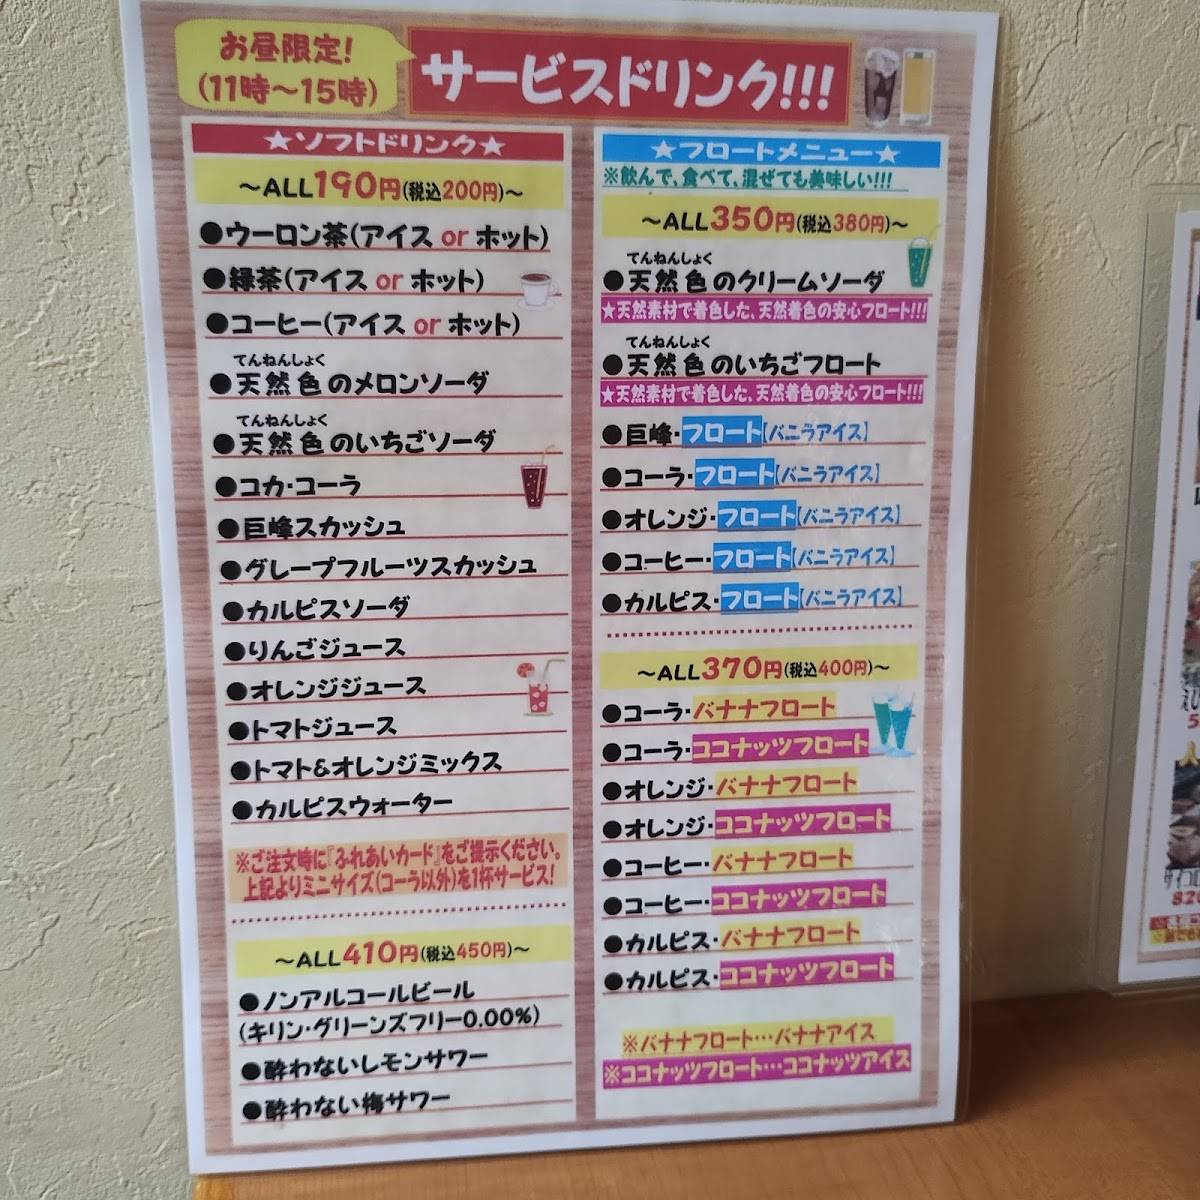 お昼限定!
(11時～15時)
サービスドリンク!!!
★ソフトドリンク★
～ALL190円(税込200円)～
●ウーロン茶(アイス or ホット)
●緑茶(アイス or ホット)
●コーヒー(アイス or ホット)
てんねんしょく
●天然色のメロンソーダ
てんねんしょく
●天然色のいちごソーダ
●コカ・コーラ
●巨峰スカッシュ
●グレープフルーツスカッシュ
●カルピスソーダ
●りんごジュース
●オレンジジュース
●トマトジュース
●トマト&オレンジミックス
●カルピスウォーター
※ご注文時に『ふれあいカード』をご提示ください。
上記よりミニサイズ(コーラ以外)を1杯サービス!
～ALL410円(税込450円)～
●ノンアルコールビール
(キリン・グリーンズフリー0.00%)
●酔わないレモンサワー
●酔わない梅サワー
★フロートメニュー★
※飲んで、食べて、混ぜても美味しい!!!
～ALL350円(税込380円)～
てんねんしょく
●天然色のクリームソーダ
★天然素材で着色した、天然着色の安心フロート!!!
てんねんしょく
●天然色のいちごフロート
★天然素材で着色した、天然着色の安心フロート!!!
●巨峰・フロート【バニラアイス】
●コーラ・フロート【バニラアイス】
●オレンジ・フロート【バニラアイス】
●コーヒー・フロート【バニラアイス】
●カルピス・フロート【バニラアイス】
～ALL370円(税込400円)～
●コーラ・バナナフロート
●コーラ・ココナッツフロート
●オレンジ・バナナフロート
●オレンジ・ココナッツフロート
●コーヒー・バナナフロート
●コーヒー・ココナッツフロート
●カルピス・バナナフロート
●カルピス・ココナッツフロート
※バナナフロート…バナナアイス
※ココナッツフロート…ココナッツアイス